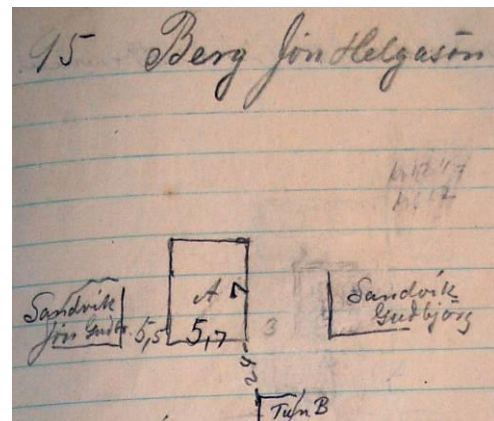 95 Berg Jón Helgason
A 7
Sandvík
Jón Guðbr. 5,5 5,7 3
Sandvík
Guðbjörg
24
Tún B